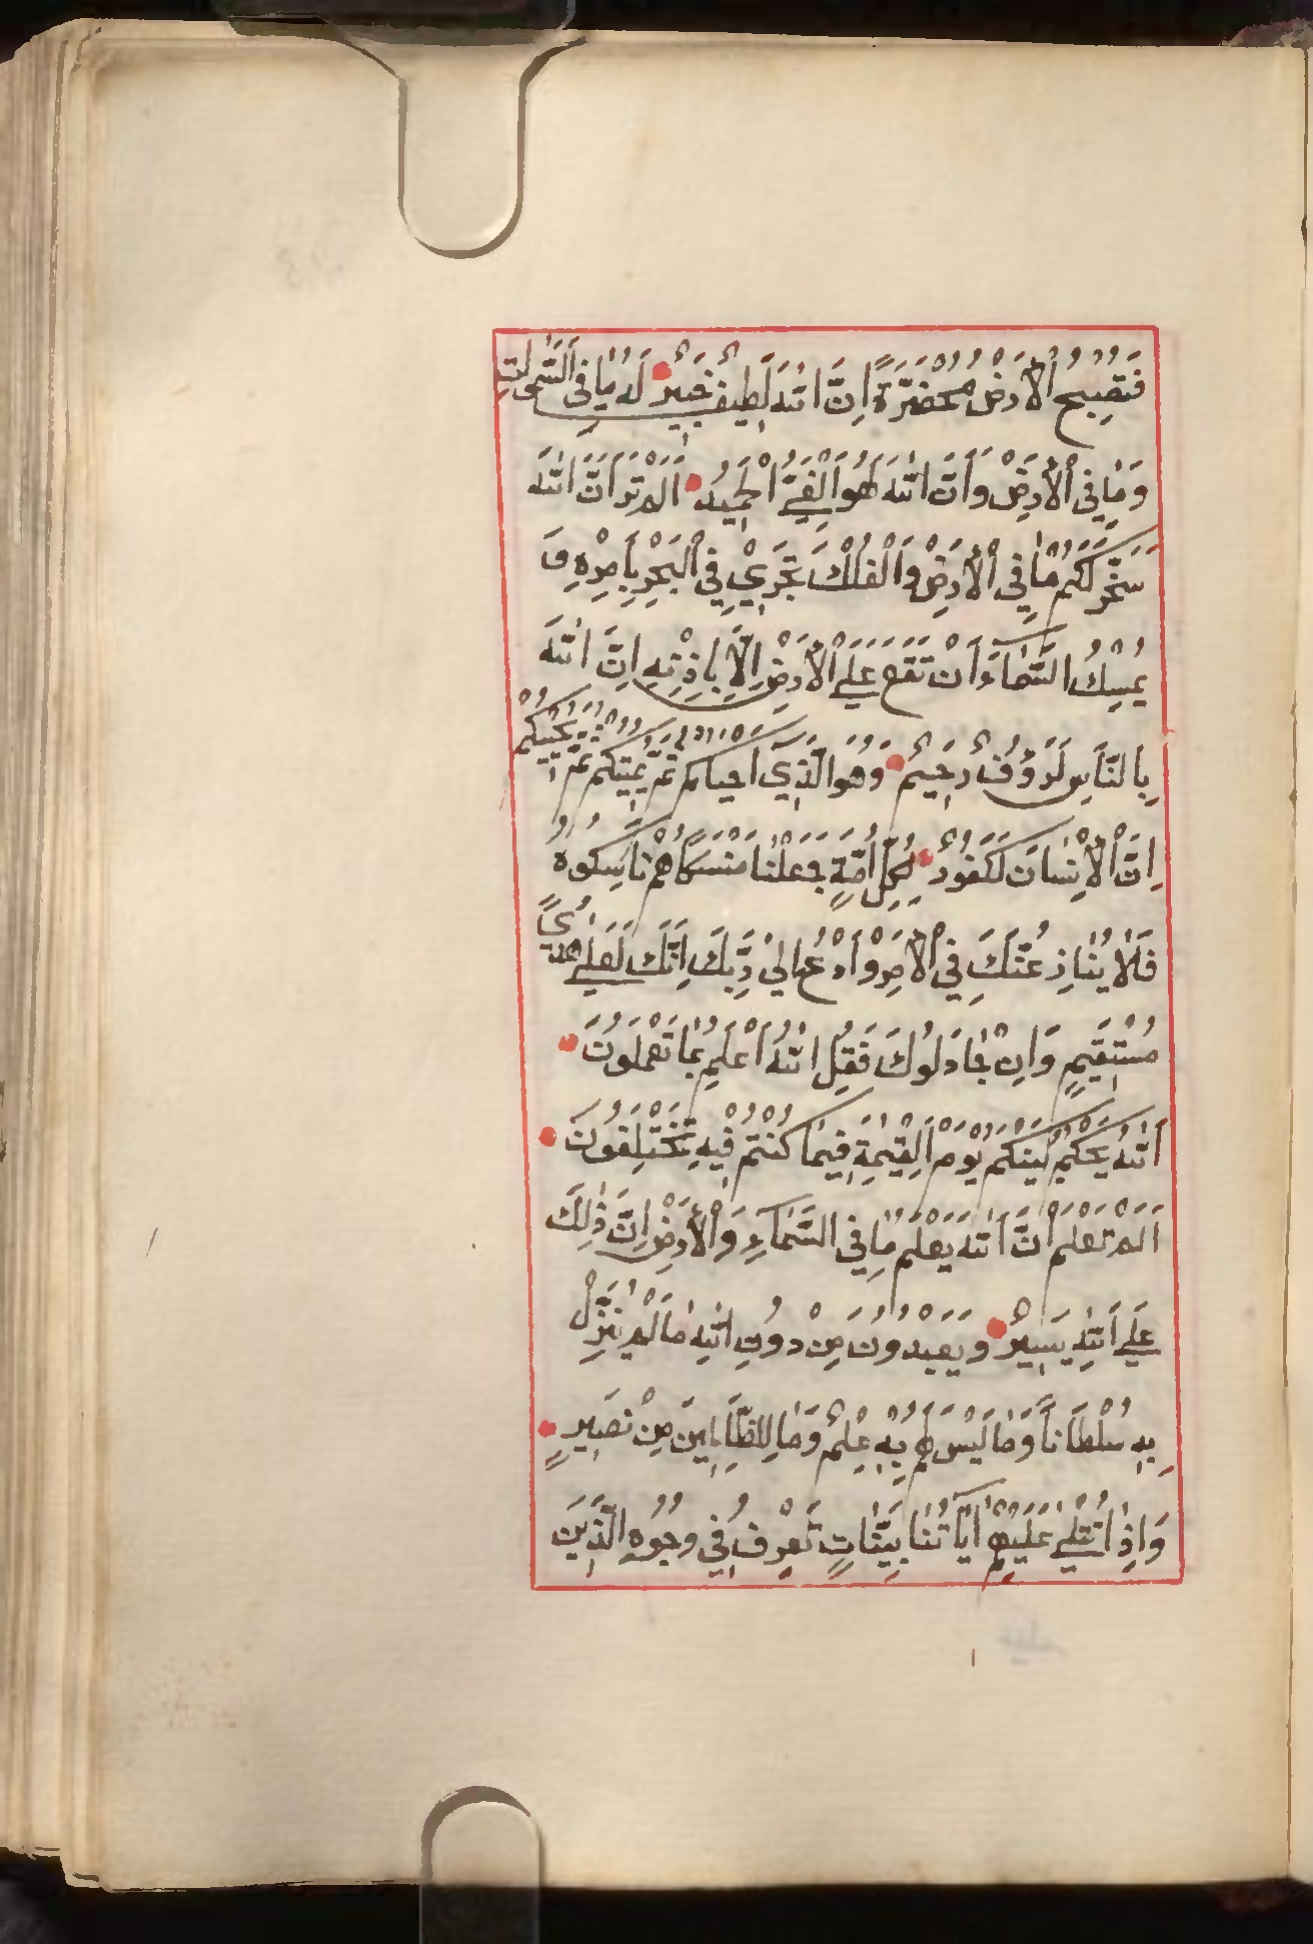 فَتُصْبِحُ الْأَرْضُ مُخْضَرَّةً اِنَّ اللّٰهَ لَطِيفٌ خَبِيرٌ لَهُ مَا فِي السَّمٰوٰاتِ
وَمَا فِي الْأَرْضِ وَاَنَّ اللّٰهَ لَهُوَ الْغَنِيُّ الْحَمِيدُ اَلَمْ تَرَ اَنَّ اللّٰهَ
سَخَّرَ لَكُمْ مَا فِي الْأَرْضِ وَالْفُلْكَ تَجْرِيْ فِي الْبَحْرِ بِاَمْرِهِ وَ
يُمْسِكُ السَّمَآءَ اَنْ تَقَعَ عَلَي الْأَرْضِ اِلَّا بِاِذْنِهِ اِنَّ اللّٰهَ
بِالنَّاسِ لَرَؤُفٌ رَحِيمٌ وَهُوَ الَّذِيٓ اَحْيَاكُمْ ثُمَّ يُمِيتُكُمْ ثُمَّ يُحْيِيكُمْ
اِنَّ الْأِنْسَانَ لَكَفُورٌ لِكُلِّ اُمَّةٍ جَعَلْنَا مَنْسَكًا هُمْ نَاسِكُوهُ
فَلَا يُنَازِعُنَّكَ فِي الْأَمْرِ وَادْعُ اِلٰي رَبِّكَ اِنَّكَ لَعَلٰي هُدًي
مُسْتَقِيمٍ وَاِنْ جَادَلُوكَ فَقُلِ اللّٰهُ اَعْلَمُ بِمَا تَعْمَلُونَ
اَللّٰهُ يَحْكُمُ بَيْنَكُمْ يَوْمَ الْقِيٰمَةِ فِيمَا كُنْتُمْ فِيهِ تَخْتَلِفُونَ
اَلَمْ تَعْلَمْ اَنَّ اللّٰهَ يَعْلَمُ مَا فِي السَّمَآءِ وَالْأَرْضِ اِنَّ ذٰلِكَ
عَلَي اللّٰهِ يَسِيرٌ وَيَعْبُدُونَ مِنْ دُونِ اللّٰهِ مَا لَمْ يُنَزِّلْ
بِهِ سُلْطَانًا وَمَا لَيْسَ لَهُمْ بِهِ عِلْمٌ وَمَا لِلظَّالِمِينَ مِنْ نَصِيرٍ
وَاِذَا تُتْلٰي عَلَيْهِمْ اٰيَاتُنَا بَيِّنَاتٍ تَعْرِفُ فِي وُجُوهِ الَّذِينَ